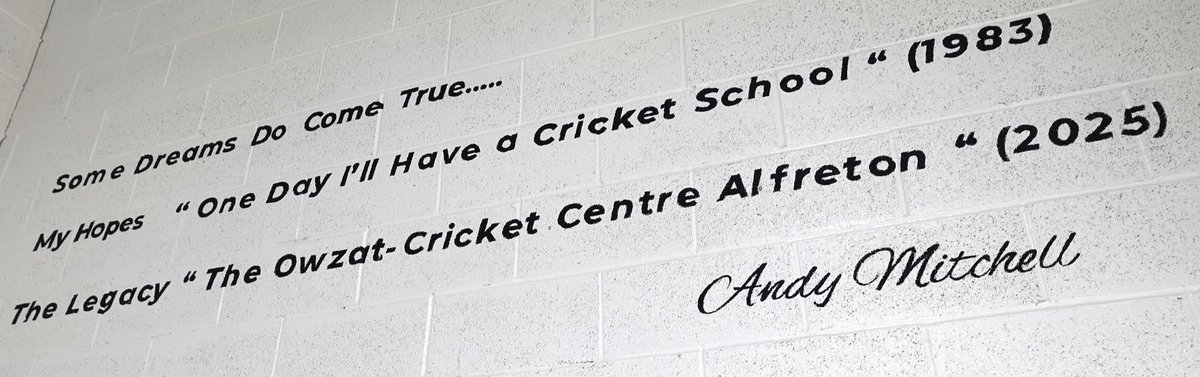 Some Dreams Do Come True.....
My Hopes “ One Day I’ll Have a Cricket School “ (1983)
The Legacy “ The Owzat-Cricket Centre Alfreton “ (2025)
Andy Mitchell